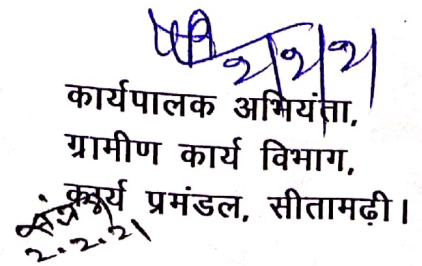 २/२/२१
कार्यपालक अभियंता,
ग्रामीण कार्य विभाग,
कार्य प्रमंडल, सीतामढ़ी।
2.2.21